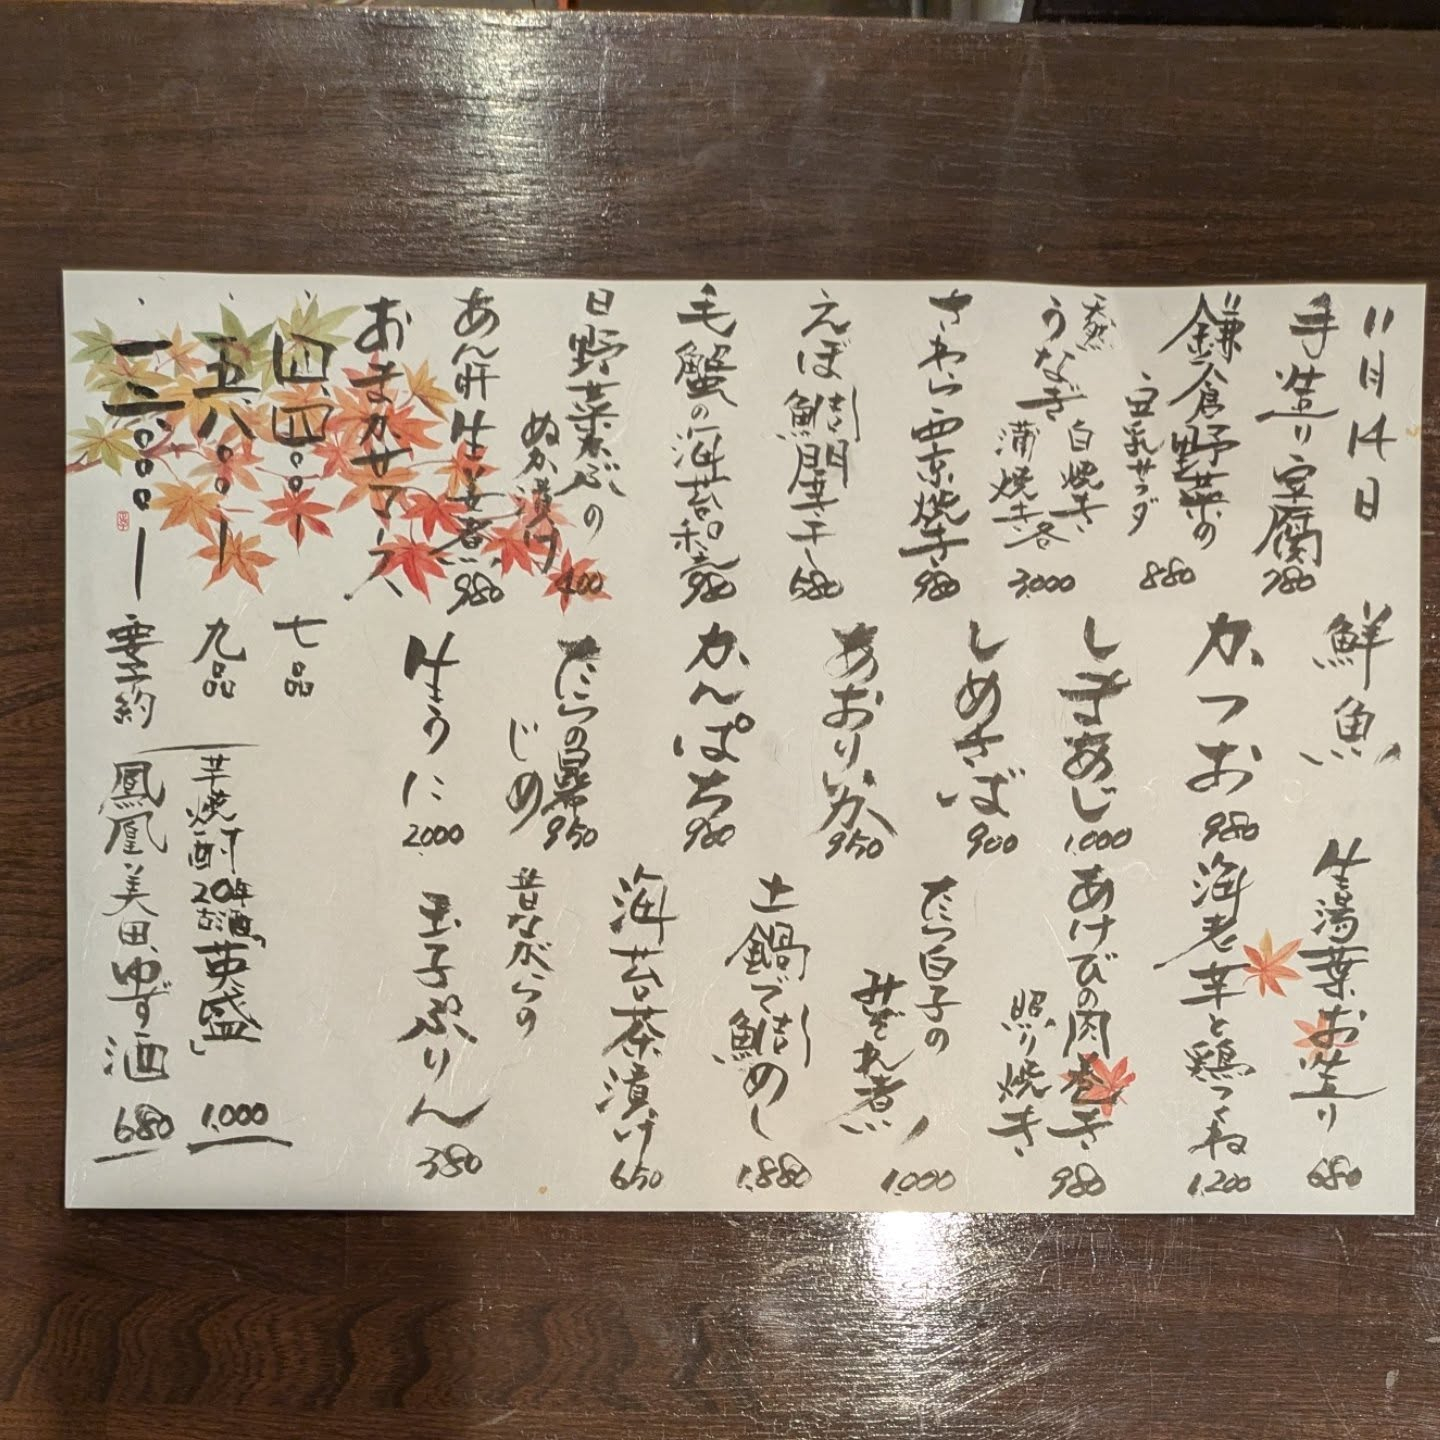 11月14日
手造り豆腐
780
鎌倉野菜の
豆乳サラダ
880
天然
うなぎ
白焼き
蒲焼き各
3,000
さわら西京焼き
980
えぼ鯛開き干し
580
毛蟹の海苔和え
980
日野菜かぶの
ぬか漬け
400
あん肝生姜煮
980
おまかせコース
四、四〇〇ー
七品
五、八〇〇ー
九品
一二、〇〇〇ー
要予約
鮮魚
かつお
980
しまあじ
1,000
しめさば
900
あおりいか
950
かんぱち
980
たらの昆布
じめ
950
生うに
2,000
生湯葉お造り
680
海老芋と鶏つくね
1,200
あけびの肉巻き
照り焼き
980
たら白子の
みぞれ煮
1,000
土鍋で鯛めし
1,880
海苔茶漬け
650
昔ながらの
玉子ぷりん
380
芋焼酎20年古酒「英盛」
1,000
鳳凰美田、ゆず酒
680